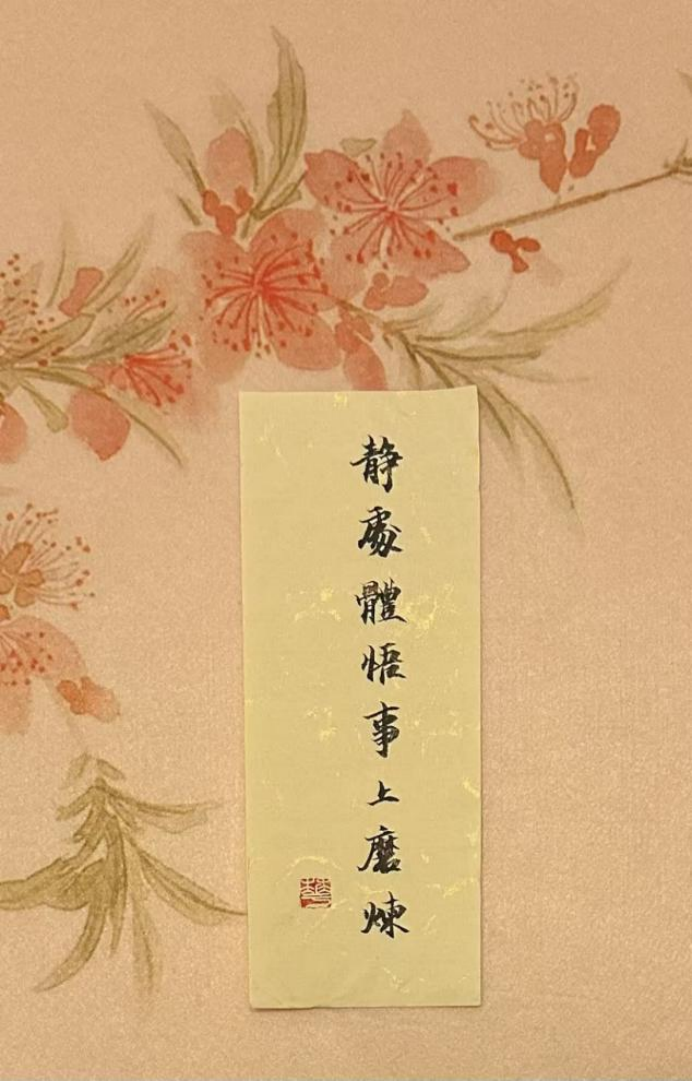 靜處體悟事上磨煉